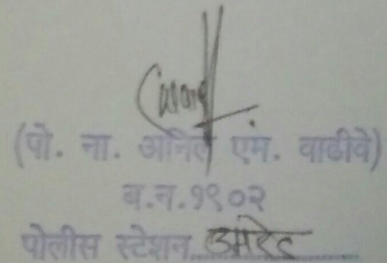 (पो. ना. अनिल एम. वाढीवे)
ब.न.१९०२
पोलीस स्टेशन उमरेड